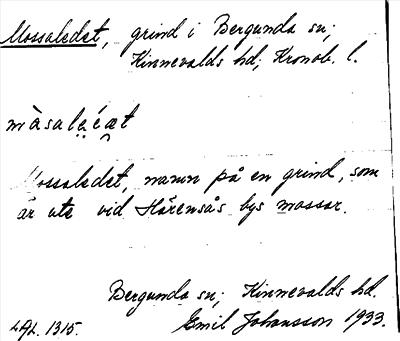 Mossaledet, grind i Bergunda sn;
Kinnevalds hd; Kronob. l.
màsalẹéæt
Mossaledet, namn på en grind, som
är ute vid Härensås bys mossar.
Bergunda sn; Kinnevalds hd.
LAL. 1315. Emil Johansson 1933.